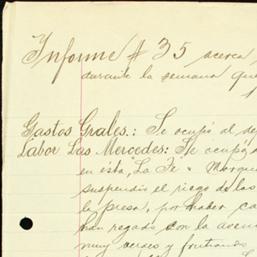 Informe # 35 acerca
durante la semana que
Gastos Grales.: Se ocupó al de
Labor Las Mercedes: Se ocupó
en ésta "La Fe"
suspendió el riego de las
la presa, por haber ca
han regado con la aveni
muy verdes y frutando